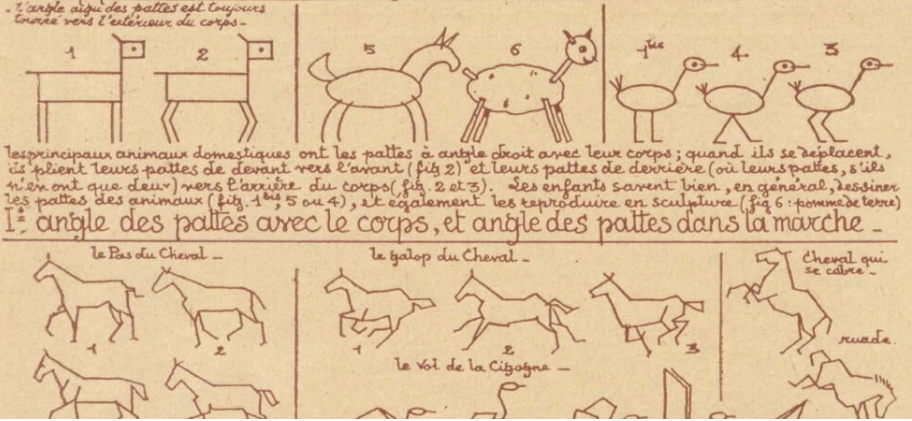 - l'angle aigu des pattes est toujours
tourné vers l'extérieur du corps -
1 2 5 6 1bis 4 3
les principaux animaux domestiques ont les pattes à angle droit avec leur corps ; quand ils se déplacent,
ils plient leurs pattes de devant vers l'avant (fig 2) et leurs pattes de derrière (où leurs pattes, s'ils
n'en ont que deux) vers l'arrière du corps (fig. 2 et 3). Les enfants savent bien, en général, dessiner
les pattes des animaux (fig. 1bis 5 ou 4), et également les reproduire en sculpture (fig 6 : pomme de terre)
I: angle des pattes avec le corps, et angle des pattes dans la marche -
le Pas du Cheval -
1 2
le galop du Cheval -
1 2 3
Cheval qui
se cabre -
ruade.
le Vol de la Cigogne -